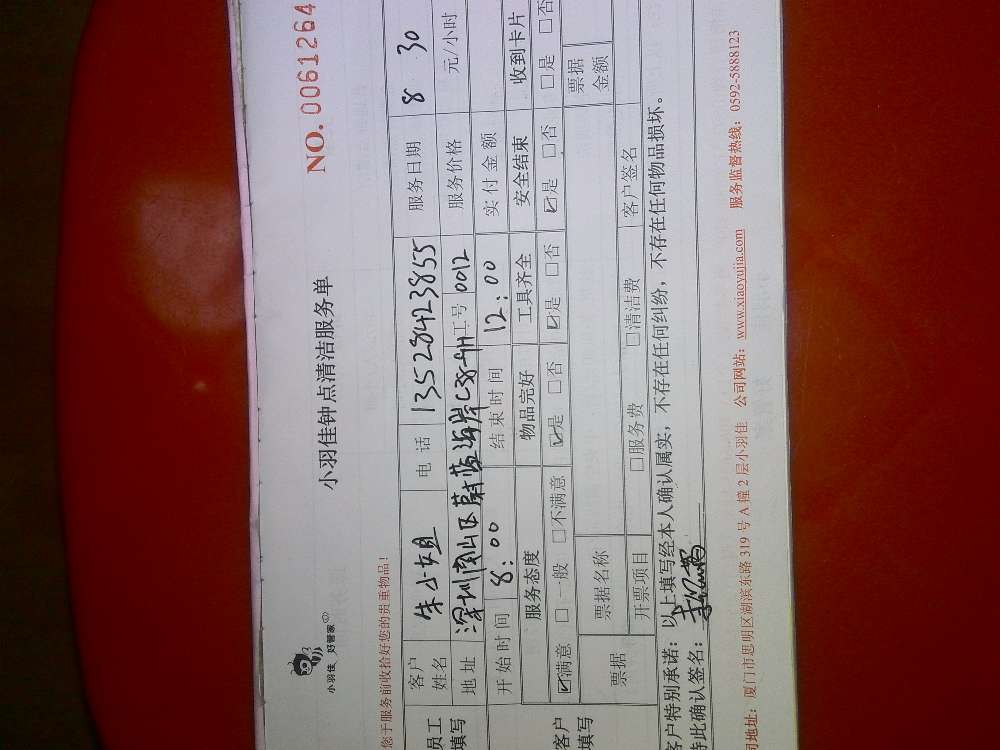 小羽佳 好管家
小羽佳钟点清洁服务单
NO. 0061264
您于服务前收拾好您的贵重物品!
员工填写 客户姓名 朱小姐 电话 13528423855 服务日期 8 30
地址 深圳南山区蔚蓝海岸C38-9H 工号 0012 服务价格 元/小时
开始时间 8:00 结束时间 12:00 实付金额
客户填写 服务态度 物品完好 工具齐全 安全结束 收到卡片
☑满意 □一般 □不满意 ☑是 □否 ☑是 □否 ☑是 □否 □是 □否
票据 票据名称 票据金额
开票项目 □服务费 □清洁费 客户签名
客户特别承诺:以上填写经本人确认属实,不存在任何纠纷,不存在任何物品损坏。
特此确认签名:
司地址:厦门市思明区湖滨东路319号A幢2层小羽佳 公司网站:www.xiaoyujia.com 服务监督热线:0592-5888123